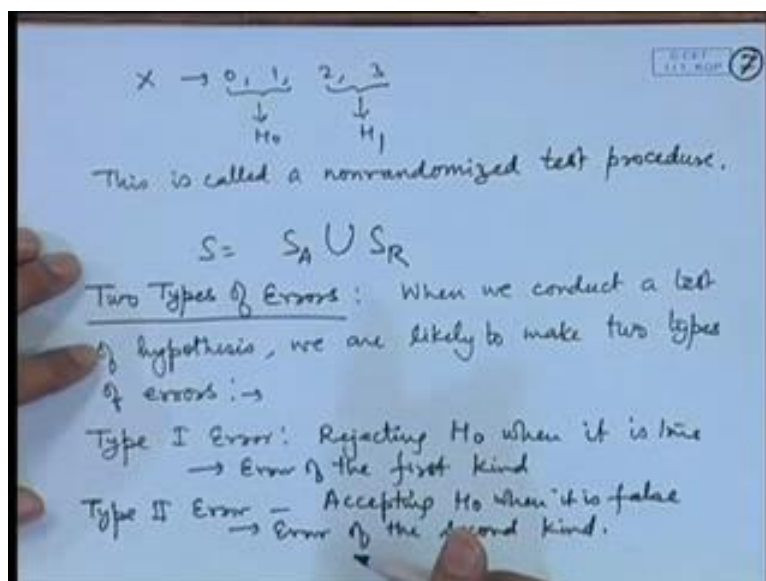 X → 0, 1, 2, 3
↓ ↓
H₀ H₁
This is called a nonrandomized test procedure.
S = S_A ∪ S_R
Two Types of Errors : When we conduct a test
of hypothesis, we are likely to make two types
of errors : →
Type I Error : Rejecting H₀ when it is true
→ Error of the first kind
Type II Error – Accepting H₀ when it is false
→ Error of the second kind.
7